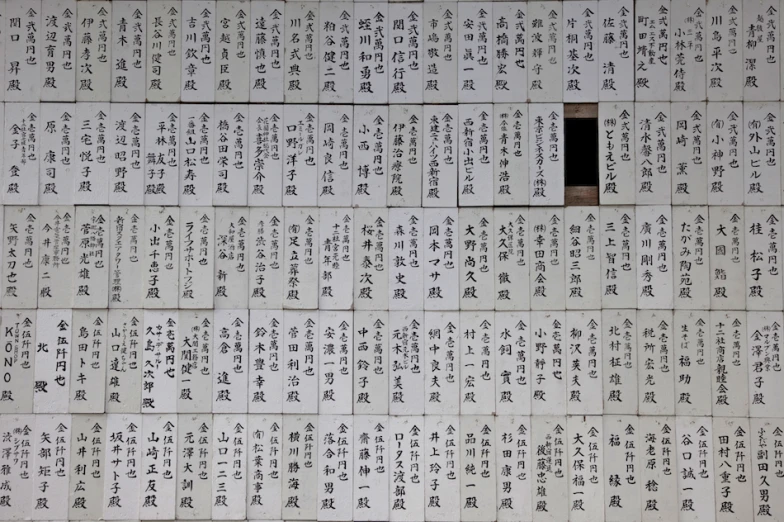 金弐萬円也 青柳 潔 殿
金弐萬円也 川島平次殿
金弐萬円也 小林莞侍殿
金弐萬円也 町田靖之殿
金弐萬円也 佐藤 清 殿
金弐萬円也 片桐基次殿
金弐萬円也 難波輝守殿
金弐萬円也 高橋勝宏殿
金弐萬円也 安田眞一殿
金弐萬円也 市嶋敬造殿
金弐萬円也 関口信行殿
金弐萬円也 蛭川和勇殿
金弐萬円也 粕谷健二殿
金弐萬円也 川名式典殿
金弐萬円也 遠藤慎也殿
金弐萬円也 宮越貞臣殿
金弐萬円也 吉川欽章殿
金弐萬円也 長谷川健司殿
金弐萬円也 青木 進 殿
金弐萬円也 伊藤孝次殿
金弐萬円也 渡辺育男殿
金弐萬円也 関口 昇 殿
金弐萬円也 (有)外山ビル殿
金弐萬円也 (有)小神野殿
金弐萬円也 岡崎 薫 殿
金弐萬円也 清水馨八郎殿
金弐萬円也 (株)ともえビル殿
東京ビジネスガーズ(株)殿
金壱萬円也 青木伸浩殿
西新宿小出ビル殿
東建ニューハイツ西新宿殿
金壱萬円也 伊藤治療院殿
金壱萬円也 小西 博 殿
金壱萬円也 岡崎良信殿
金壱萬円也 口野洋子殿
喜多崇介殿
金壱萬円也 橋谷田栄司殿
金壱萬円也 一番組山口松寿殿
金壱萬円也 平林 友子 舞子殿
金壱萬円也 渡辺昭野殿
金壱萬円也 三宅悦子殿
金壱萬円也 原 康司殿
金壱萬円也 金子 登 殿
金壱萬円也 桂 松子 殿
金壱萬円也 大國 殿
金壱萬円也 たがみ陶苑殿
金壱萬円也 廣川剛秀殿
金壱萬円也 三上智信殿
金壱萬円也 細谷昭三郎殿
金壱萬円也 (株)幸田商会殿
金壱萬円也 大久保 徹殿
金壱萬円也 大野尚久殿
金壱萬円也 岡本マサ殿
金壱萬円也 森川敦史殿
金壱萬円也 桜井泰次殿
金壱萬円也 青年部殿
金壱萬円也 (有)足立葬祭殿
金壱萬円也 渋谷治子殿
金壱萬円也 深谷 新 殿
金壱萬円也 ライフサポートフジ殿
金壱萬円也 小出千恵子殿
金壱萬円也 殿
金壱萬円也 菅原光雄殿
金壱萬円也 今井康二殿
金壱萬円也 矢野太刀也殿
金壱萬円也 金澤君子殿
金壱萬円也 十二社商店親睦会殿
金壱萬円也 生そば 福助 殿
金壱萬円也 税所宏光殿
金壱萬円也 北村柾雄殿
金壱萬円也 柳沢英夫殿
金壱萬円也 小野静子殿
金壱萬円也 水飼 實殿
金壱萬円也 村上一宏殿
金壱萬円也 網中良夫殿
金壱萬円也 元木弘美殿
金壱萬円也 中西鈴子殿
金壱萬円也 安濃一男殿
金壱萬円也 菅田利治殿
金壱萬円也 鈴木豊幸殿
金壱萬円也 高倉 進 殿
金壱萬円也 大関健一殿
金壱萬円也 久島久次郎殿
金伍阡円也 山口道雄殿
金伍阡円也 島田トキ殿
金伍阡円也 北 殿
金伍阡円也 KŌNO殿
金伍阡円也 副田久男殿
金伍阡円也 田村八重子殿
金伍阡円也 谷口誠一殿
金伍阡円也 海老原 稔殿
金伍阡円也 福 縁 殿
金伍阡円也 大久保福一殿
金伍阡円也 後藤忠雄殿
金伍阡円也 杉田康男殿
金伍阡円也 品川純一殿
金伍阡円也 井上玲子殿
金伍阡円也 ロータス渡部殿
金伍阡円也 齋藤伸一殿
金伍阡円也 落合和男殿
金伍阡円也 横川勝海殿
金伍阡円也 (有)松葉商事殿
金伍阡円也 山口一二三殿
金伍阡円也 元澤大訓殿
金伍阡円也 山崎正友殿
金伍阡円也 坂井サト子殿
金伍阡円也 山井利広殿
金伍阡円也 矢部矩子殿
金伍阡円也 渋澤雅成殿